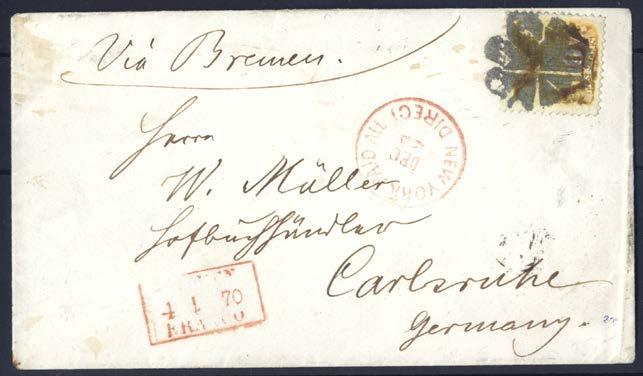 Via Bremen.
NEW YORK PAID ALL DIRECT
DEC
Herrn
W. Müller
Hofbuchhändler
Carlsruhe
Germany.
4 1 70
FRANCO